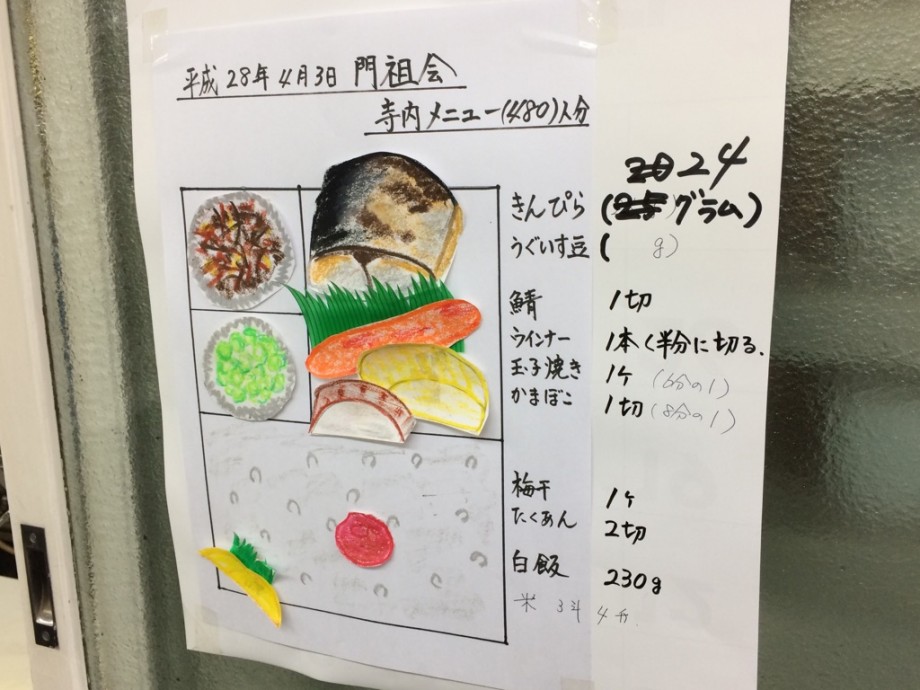 平成28年4月3日 門祖会
寺内メニュー(480)人分
24
きんぴら (グラム)
うぐいす豆 ( g)
鯖 1切
ウインナー 1本(半分に切る.
玉子焼き 1ケ (6分の1)
かまぼこ 1切(8分の1)
梅干 1ケ
たくあん 2切
白飯 230g
米 3斗 4升